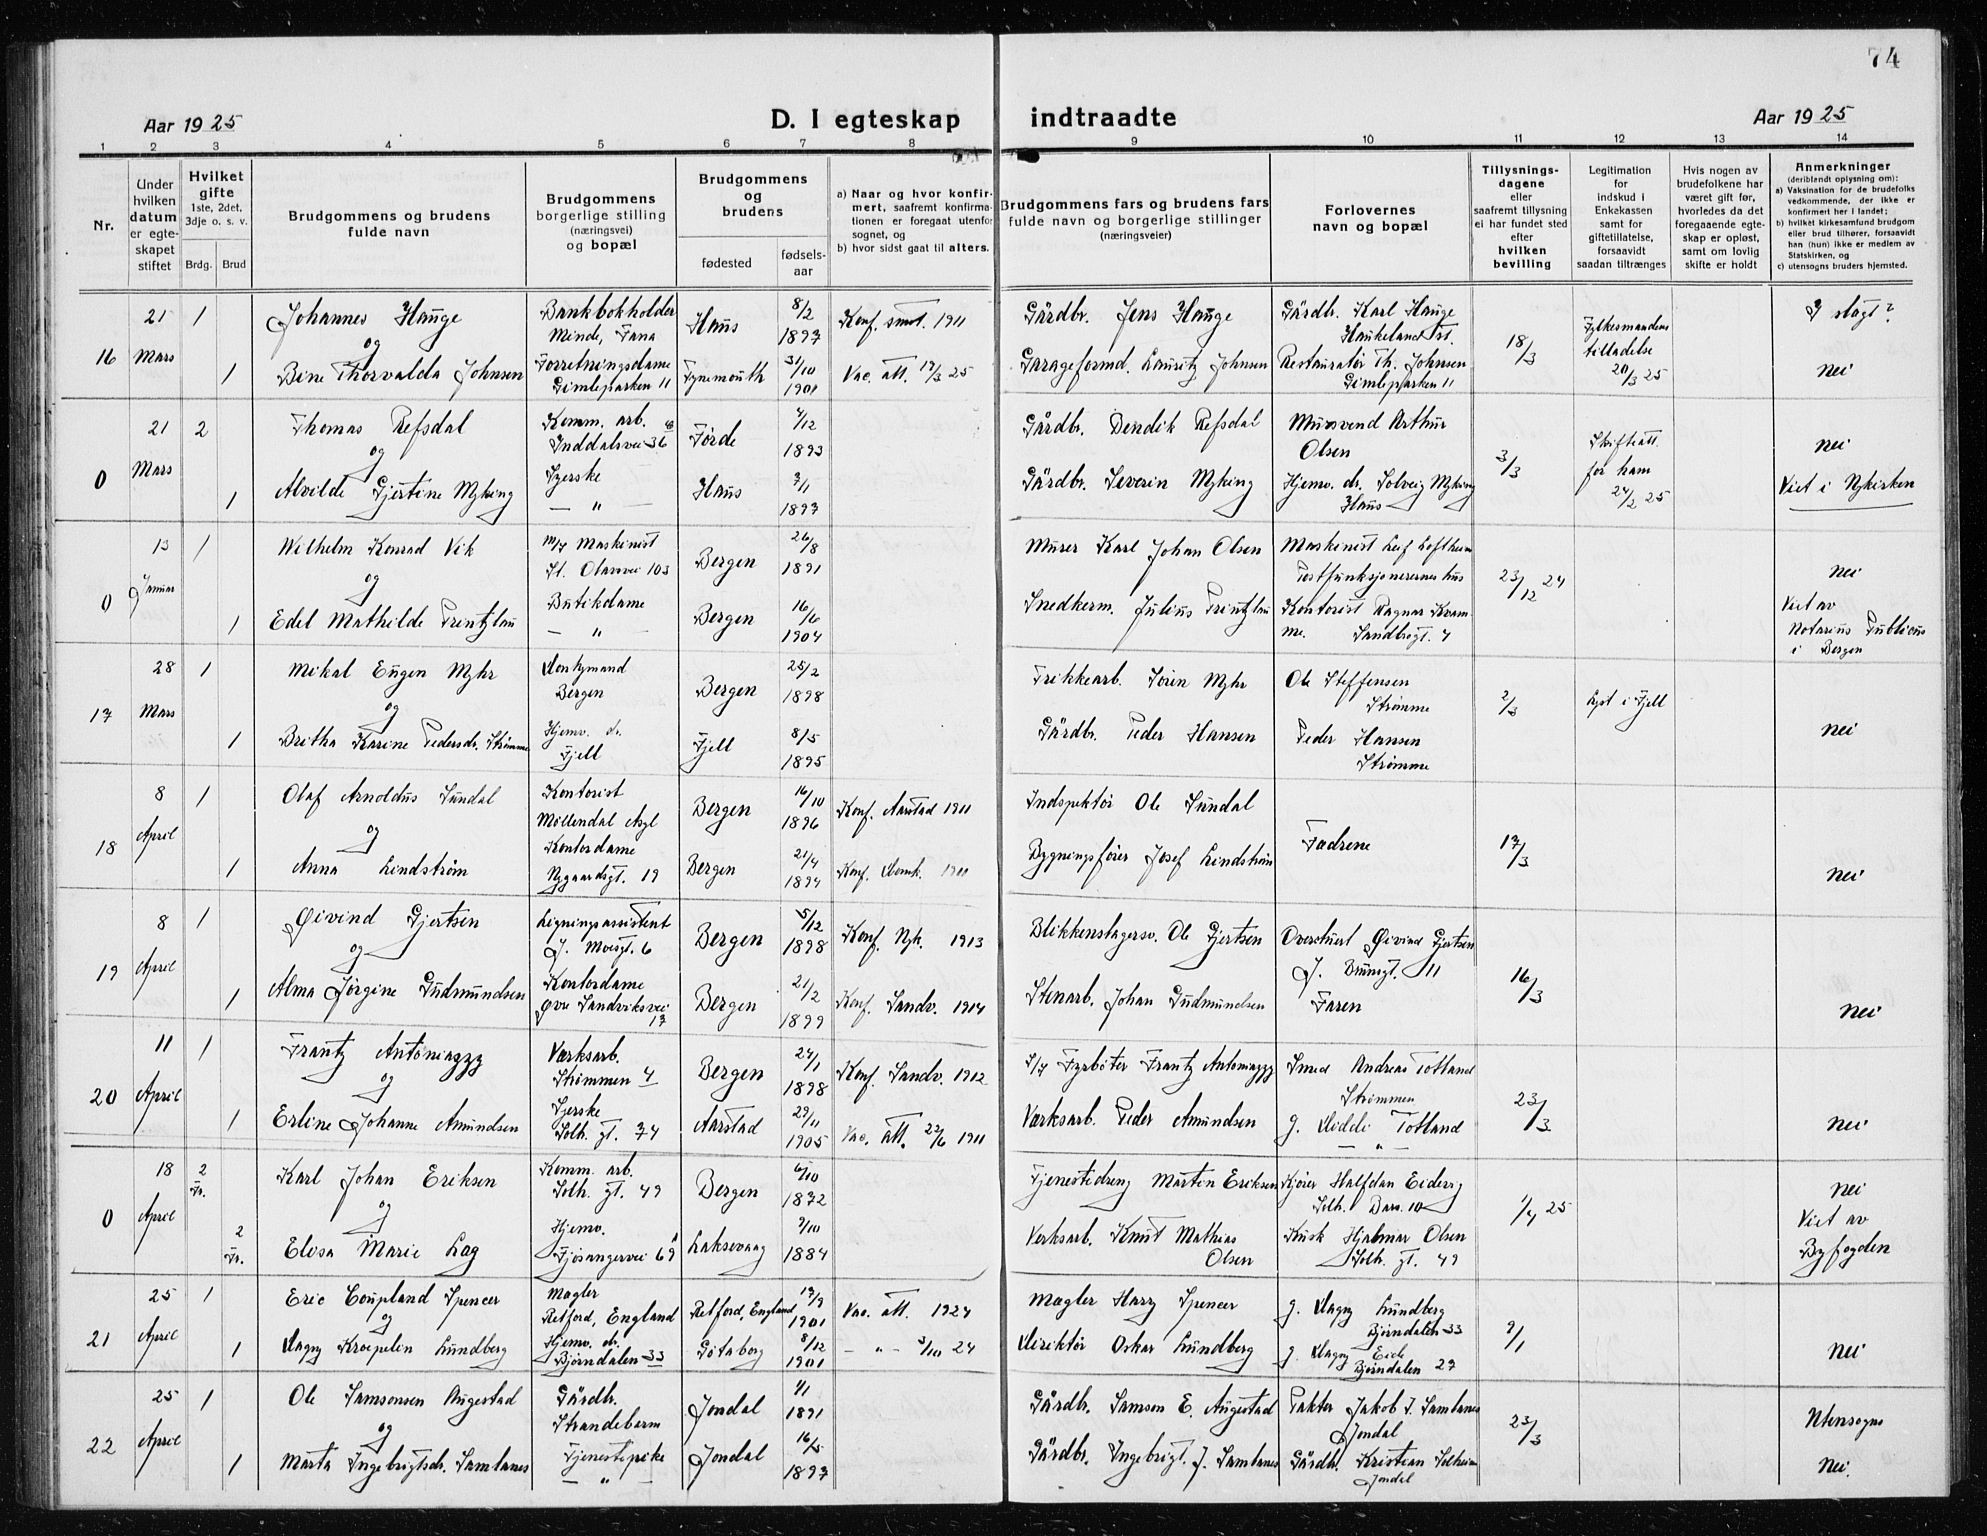 74
Aar 1925
D. I egteskap indtraadte
Aar 1925
1 2 3 4 5 6 7 8 9 10 11 12 13 14
Nr.
Under hvilken datum er egteskapet stiftet
Hvilket gifte 1ste, 2det, 3dje o. s. v.
Brdg. Brud
Brudgommens og brudens fulde navn
Brudgommens borgerlige stilling (næringsvei) og bopæl
Brudgommens og brudens
fødested
fødselsaar
a) Naar og hvor konfirmert, saafremt konfirmationen er foregaat utenfor sognet, og
b) hvor sidst gaat til alters.
Brudgommens fars og brudens fars fulde navn og borgerlige stillinger (næringsveier)
Forlovernes navn og bopæl
Tillysningsdagene eller saafremt tillysning ei har fundet sted efter hvilken bevilling
Legitimation for indskud i Enkakassen samt for giftetillatelse, forsaavidt saadan tiltrænges
Hvis nogen av brudefolkene har været gift før, hvorledes da det foregaaende egteskap er opløst, samt om lovlig skifte er holdt
Anmerkninger (deriblandt oplysning om):
a) Vaksination for de brudefolks vedkommende, der ikke er konfirmert her i landet;
b) hvilket kirkesamfund brudgom eller brud tilhører, forsaavidt han (hun) ikke er medlem av Statskirken, og
c) utensogns bruders hjemsted.
16 21 Mars 1 Johannes Hauge Bankbokholder Minde, Fana Haus 8/2 1897 Konf. smst. 1911 Gårdbr. Jens Hauge Gårdbr. Karl Hauge Haukeland st. 18/3 Fylkesmandens tilladelse 20/3 25 I slagt?
og
1 Bine Thorvalda Johnsen Forretningsdame Gimleparken 11 Tynemouth 31/10 1901 Vac. att. 19/3 25 Garageformd. Lauritz Johnsen Restauratør Th. Johnsen Gimleparken 11 nei
0 21 Mars 2 Thomas Refsdal Komm. arb. Inddalsvei 36 Førde 4/12 1893 Gårdbr. Bendik Refsdal Mursvend Arthur Olsen 3/3 Skifteatt. for ham 24/2 25 nei
og
1 Alvilde Gjertine Myking Syerske — " — Haus 3/1 1897 Gårdbr. Severin Myking Hjemv. dr. Solveig Myking Haus Viet i Nykirken
0 13 Januar 1 Wilhelm Konrad Vik m/7 Maskinist St. Olavsvei 103 Bergen 26/8 1891 Murer Karl Johan Olsen Maskinist Leif Loftheim Postfunksjonærernes hus 23/12 24 nei
og
1 Edel Mathilde Printzlau Butikdame — " — Bergen 16/6 1904 Snedkerm. Julius Printzlau Kontorist Ragnar Kvamme. Sandbrogt. 4 Viet av Notarius Publicus i Bergen
17 28 Mars 1 Mikal Eugen Myhr Donkymand Bergen Bergen 25/2 1898 Frikkearb. Søren Myhr Ole Steffensen Strømme 2/3 Lyst i Fjell
og
1 Britha Karine Pedersdr. Strømme Hjemv. dr. Fjell Fjell 8/5 1895 Gårdbr. Peder Hansen Peder Hansen Strømme nei
18 8 April 1 Olaf Arnoldus Sundal Kontorist Møllendal Asyl Bergen 16/10 1896 Konf. Aarstad 1911 Indspektør Ole Sundal Fædrene 17/3
og
1 Anna Lindstrøm Kontordame Nygaardsgt. 19 Bergen 21/4 1894 Konf. Domk. 1911 Bygningsfører Josef Lindstrøm nei
19 8 April 1 Øivind Gjertsen Ligningsassistent J. Moesgt. 6 Bergen 5/12 1898 Konf. Nyk. 1913 Blikkenslagersv. Ole Gjertsen Overstuert Øivind Gjertsen J. Brunsgt. 11 16/3
og
1 Alma Jørgine Gudmundsen Kontordame Øvre Sandviksvei 17 Bergen 21/2 1899 Konf. Sandv. 1914 Stenarb. Johan Gudmundsen Faren nei
20 11 April 1 Frantz Antoniazzy Værksarb. Strømmen 4 Bergen 24/1 1898 Konf. Sandv. 1912 S/7 Fyrbøter Frantz Antoniazzy Smed Andreas Totland Strømmen 23/3
og
1 Erline Johanne Amundsen Syerske Solh. gt. 74 Aarstad 29/11 1905 Vac. att. 22/6 1911 Værksarb. Peder Amundsen g. Diddi Totland — " — nei
0 18 April 2 Fr. Karl Johan Eriksen Komm. arb. Solh. gt. 49 Bergen 6/10 1872 Tjenestedreng Martin Eriksen Kjører Halfdan Eidevig Solh. Bars. 10 1/4 25 nei
og
2 Fr. Elisa Marie Lag Hjemv. Fjøsangervei 69 Laksevaag 7/10 1884 Verksarb. Knut Mathias Olsen Kusk Hjalmar Olsen Solh. gt. 49 Viet av Byfogden
21 25 April 1 Eric Coupland Spencer Magler Retford, England Retford, England 19/9 1901 Vac. att. 1924 Magler Harry Spencer g. Dagny Lundberg Bjørndalen 33 9/1
og
1 Dagny Kroepelin Lundberg Hjemv. dr. Bjørndalen 33 Gøtaborg 8/12 1901 — " — 3/10 24 Direktør Oskar Lundberg g. Dagny Eide Bjørndalen 27 nei
22 25 April 1 Ole Samsonsen Augestad Gårdbr. Strandebarm Jondal 4/1 1891 Gårdbr. Samson E. Augestad Pakter Jakob I. Samlanes Jondal 23/3 Utensogns
og
1 Marta Ingebrigtsdr. Samlanes Tjenestepike — " — Jondal 16/5 1897 Gårdbr. Ingebrigt. J. Samlanes Gårdbr. Kristian Solheim Jondal nei.